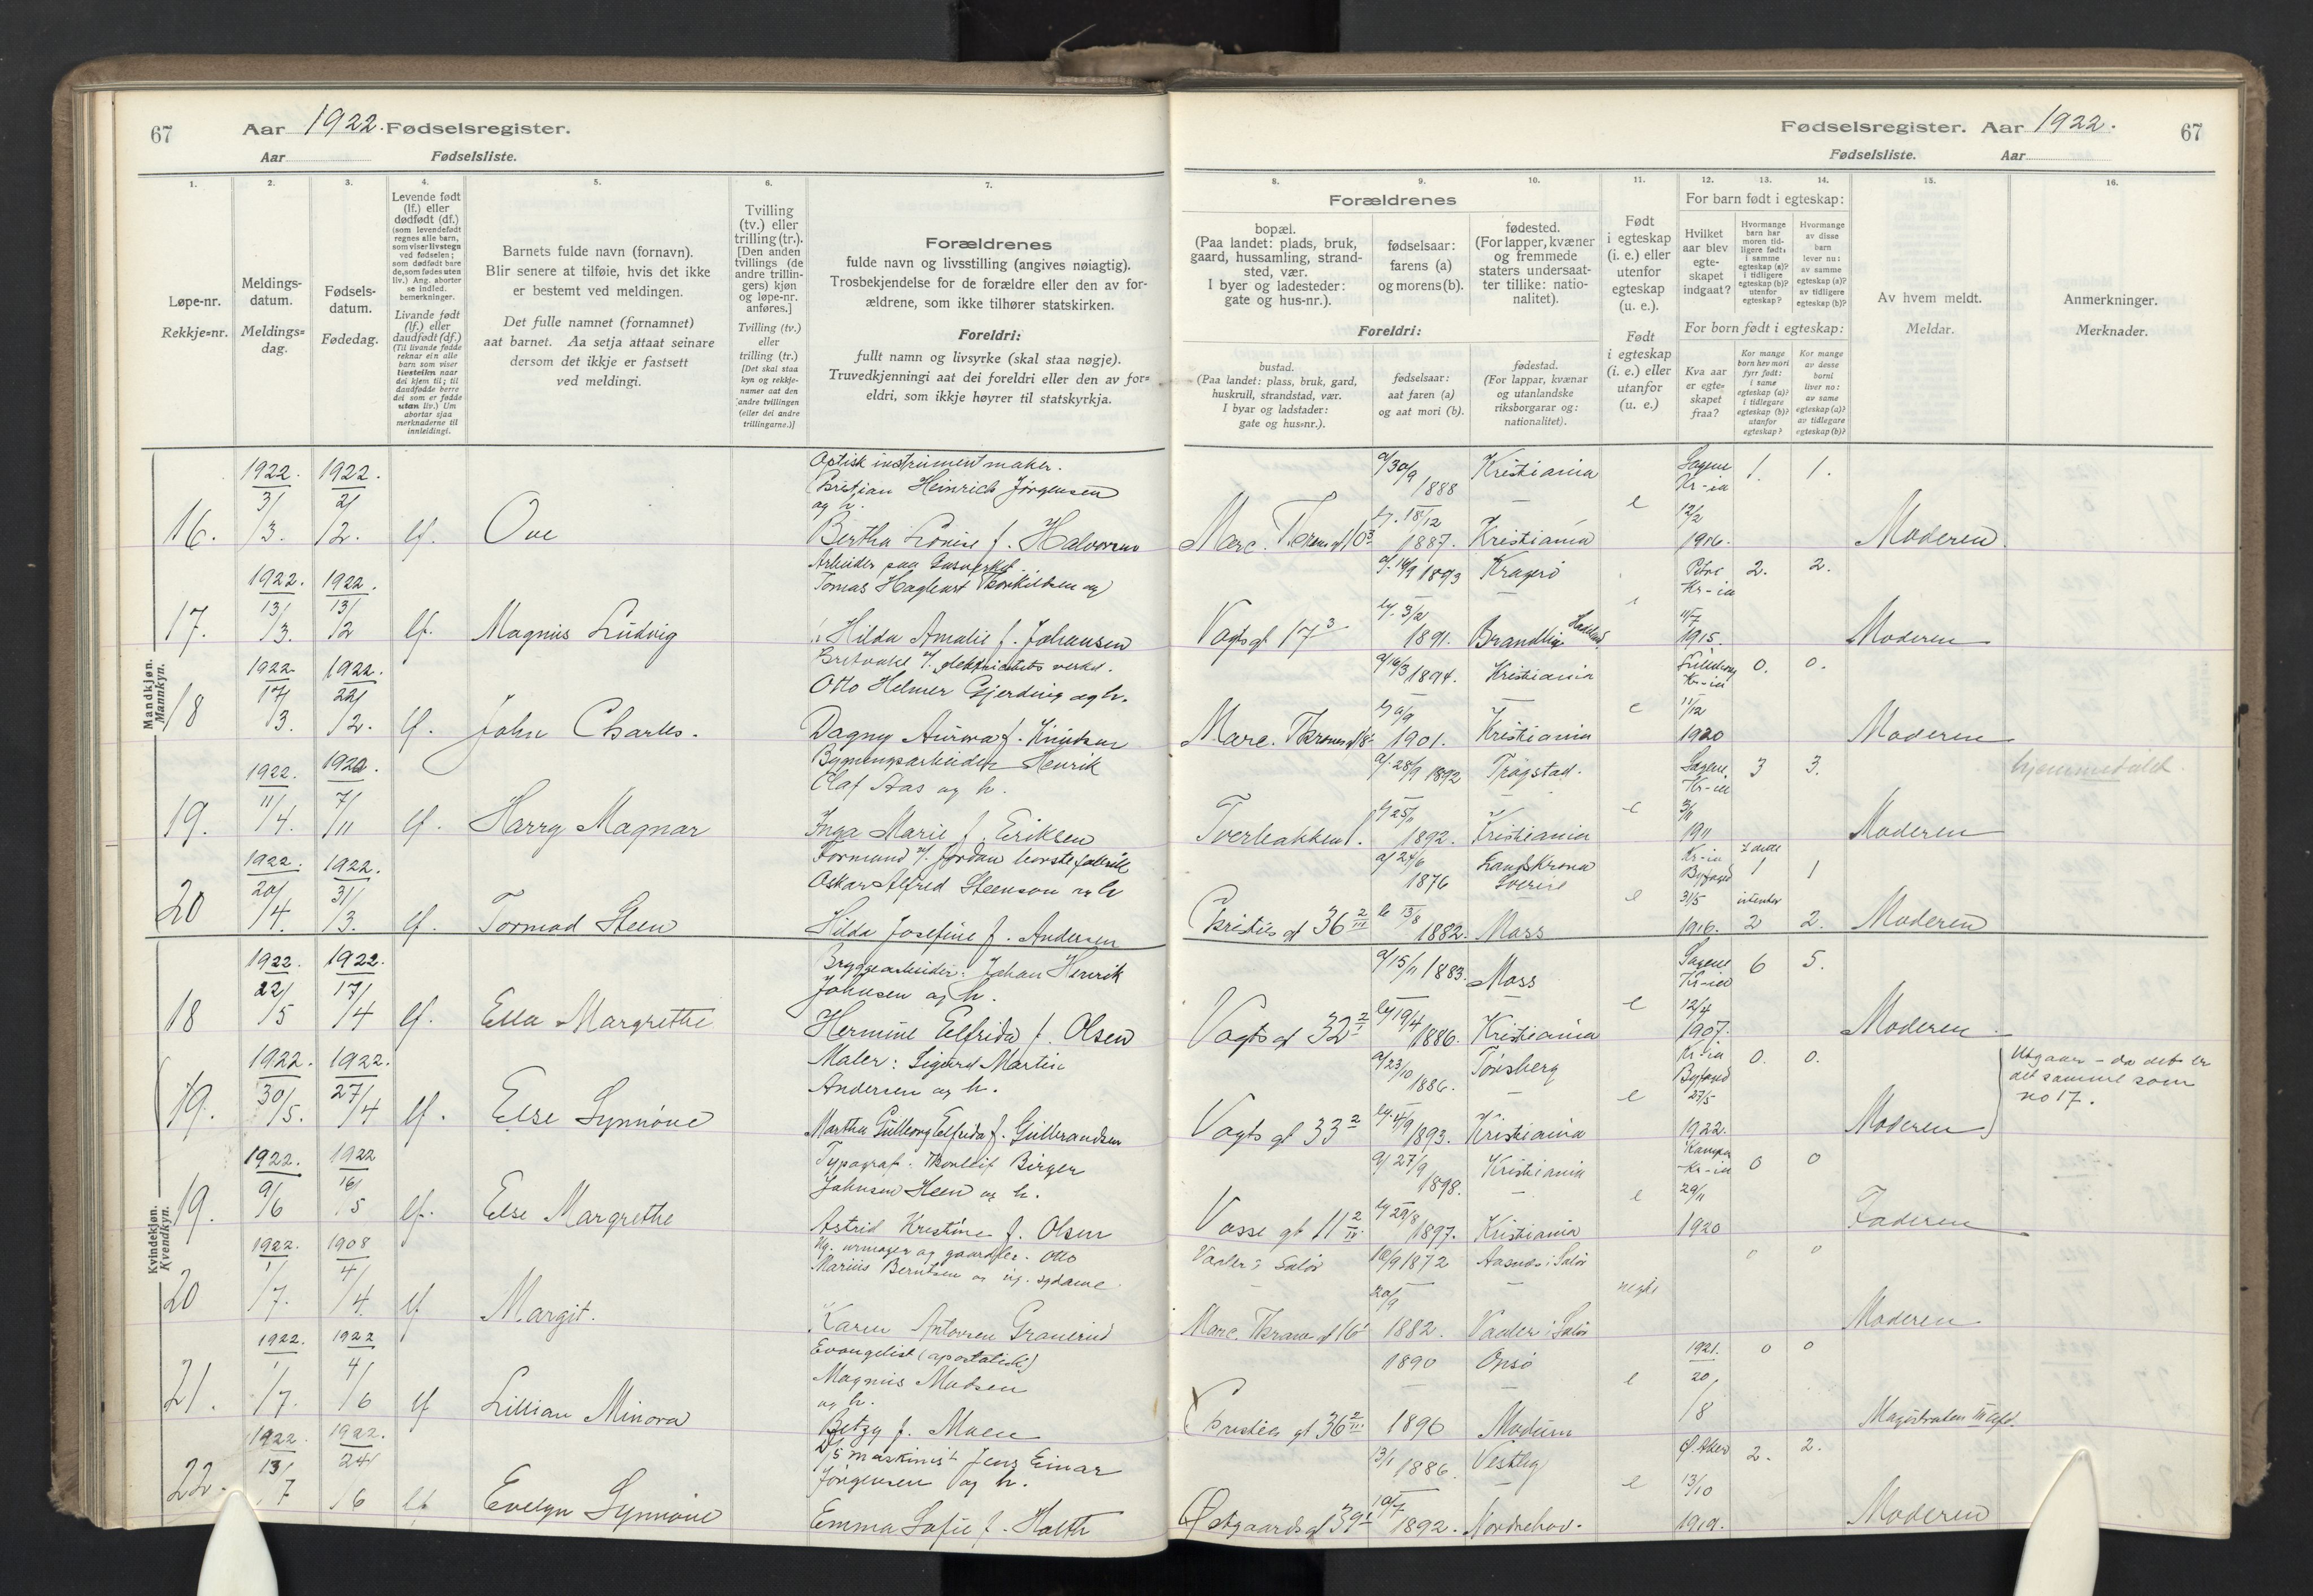 67
Aar 1922. Fødselsregister.
Aar
Fødselsliste.
Fødselsregister. Aar 1922.
67
Fødselsliste.
Aar
1.
2.
3.
4.
5.
6.
7.
Løpe-nr.
Rekkje=nr.
Meldings-
datum.
Meldings=
dag.
Fødsels-
datum.
Fødedag.
Levende født
(lf.) eller
dødfødt (df.)
(som levendefødt
regnes alle barn,
som viser livstegn
ved fødselen;
som dødfødt bare
de, som fødes uten
liv.) Ang. aborter
se indled.
bemerkninger.
Livande født
(lf.) eller
daudfødt (df.)
(Til livande fødde
reknar ein alle
barn som viser
livsteikn naar
dei kjem til; til
daudfødde berre
dei som er fødde
utan liv.) Um
abortar sjaa
merknaderne til
innleidingi.
Barnets fulde navn (fornavn).
Blir senere at tilføie, hvis det ikke
er bestemt ved meldingen.
Det fulle namnet (fornamnet)
aat barnet. Aa setja attaat seinare
dersom det ikkje er fastsett
ved meldingi.
Tvilling
(tv.) eller
trilling (tr.).
[Den anden
tvillings (de
andre trillin-
gers) kjøn
og løpe-nr.
anføres.]
Tvilling (tv.)
eller
trilling (tr.)
[Det skal staa
kyn og rekkje-
numer aat den
andre tvillingen
(eller dei andre
trillingarne.)]
Forældrenes
fulde navn og livsstilling (angives nøiagtig).
Trosbekjendelse for de forældre eller den av for-
ældrene, som ikke tilhører statskirken.
Foreldri:
fullt namn og livsyrke (skal staa nøgje).
Truvedkjenningi aat dei foreldri eller den av for=
eldri, som ikkje høyrer til statskyrkja.
8.
9.
10.
11.
12.
13.
14.
15.
16.
Forældrenes
bopæl.
(Paa landet: plads, bruk,
gaard, hussamling, strand-
sted, vær.
I byer og ladesteder:
gate og hus-nr.).
fødselsaar:
farens (a)
og morens (b).
fødested.
(For lapper, kvæner
og fremmede
staters undersaat-
ter tillike: natio-
nalitet).
Foreldri:
bustad.
(Paa landet: plass, bruk, gard,
huskrull, strandstad, vær.
I byar og ladstader:
gate og hus=nr.).
fødselsaar:
aat faren (a)
og aat mori (b).
fødestad.
(For lappar, kvænar
og utanlandske
riksborgarar og:
nationalitet).
Født
i egteskap
(i. e.) eller
utenfor
egteskap
(u. e.).
Født
i egteskap
(i. e.) eller
utanfor
(u. e.)
For barn født i egteskap:
Hvilket
aar blev
egte-
skapet
indgaat?
Hvormange
barn har
moren tid-
ligere født:
i samme
egteskap (a)?
i tidligere
egteskap (b)?
utenfor
egteskap?
Hvormange
av disse
barn
lever nu:
av samme
egteskap (a)?
av tidligere
egteskap (b)?
For born født i egteskap:
Kva aar
er egte=
skapet
fraa?
Kor mange
born hev mori
fyrr født:
i same
egteskap (a)?
i tidlegare
egteskap (b)?
utanfor
egteskap?
Kor mange
av desse
borni
liver no:
av same
egteskap (a)?
av tidlegare
egteskap (b)?
Av hvem meldt.
Meldar.
Anmerkninger.
Merknader.
Mandkjøn.
Mannkyn.
Optisk instrument maker.
1922. 1922. Cristian Heinrich Jørgensen a/30/9 1888 Kristiania Sagene Kr-ia 1. 1.
og h.
16. 3/3. 2/2. lf. Ove Bertha Lovise f. Halvorsen Marc. Thranes gt 10 3 18/12 1887. Kristiania e 12/2 1916. Moderen.
Arbeider paa Gasverket
1922. 1922. Tomas Hagbart Thorkildsen og 1893 Kragerø Kr-ia 2. 2.
17. 13/3. 13/2 lf. Magnus Ludvig Hilda Amalie f. Johansen Vogts gt 17 3 3/2 1891. Brandbu Hadeland 11/7 1915. Moderen
1922. 1922. elektricitets verket.
Otto Helmer Gjerding og h. 16/3 1894. Kristiania Kr-ia 0. 0.
18 17/3. 22/2. lf. John Charles. Dagny Aurora f. Knutsen Marc. Thranes gt 1901. Kristiania e 11/12 1920 Moderen
1922. 1922. Bygningsarbeider Henrik
Olaf Aas og h. 28/9 1892 Trøgstad. Sagene Kr-ia 3 3. hjemmedøbt.
19. 11/4. 7/11 lf. Harry Magnar Inga Marie f. Eriksen Tverbakken 1. 25/11 1892. Kristiania e 3/11 1911 Moderen
1922. 1922. Formand v/. Jordan børstefabrik
Oskar Alfred Steenson og h a/24/6 1876 Landskrona Sverige Kr-ia Byfoged 1 1
20 20/4. 31/3. lf. Tormod Steen Hilda Josefine f. Andersen Christies gt 36 2/III b 13/8 1882. Moss e 31/5 1916. utenfor 2 2. Moderen
Kvindekjøn.
Kvendkyn.
1922. 1922. Bryggearbeider: Johan Henrik
Johnsen og h. a/15/11 1883. Moss Sagene Kr-ia 6 5.
18 22/5 17/4 lf. Ella Margrethe Hermine Elfrida f. Olsen Vogts gt 32 2/I 19/4 1886. Kristiania e 12/4 1907. Moderen
1922. 1922. Maler: Sigurd Martin
Andersen og h. a/23/10 1886. Tønsberg Kr-ia Byfoged 0. 0. Utgaar - da det er
det samme som
no 17.
19. 30/5. 27/4 lf. Else Synnøve Martha Gulborg Elfrida f. Gulbrandsen Vogts gt 33 2 4/9 1893. Kristiania e 27/5 1922. Moderen
1922. 1922 Typograf. Thorleif Birger
Johnsen Heen og h. a/27/9 1898. Kristiania Kampen Kr-ia 0 0
19. 9/6 16/5 lf. Else Margrethe Astrid Kristine f. Olsen Vosse gt 11 2/IV 29/8 1897. Kristiania e 29/11 1920 Faderen
1922. 1908 Ug. urmager og gaardbr. Otto
Marius Berntsen og ug. sydame Vaaler i Solør 10/9 1872 Aasnes i Solør 0 0
20 1/7. 4/4. lf Margit. Karen Antonsen Grauerud Marc. Thrane gt 16 20/9 1882. Vaaler i Solør negte Moderen
1922. 1922 Evangelist (apostatisk)
Magnus Madsen 1890 Onsø 1921. 0 0
og h.
21. 1/7. 4/6 lf Lillian Minora Betzy f. Moen Christies gt 36 2/III 1896 Modum e 20/8 Magistraten III afd.
1922. 1922. D/S maskinist Jens Einar
Jørgensen og h. 13/1 1886. Vestby Ø. Aker 2. 2.
22. 13/7 24/6 lf. Evelyn Synnøve Emma Sofie f. Holth Østgaards gt 39 10/7 1892. Norderhov. e 13/10 1919. Moderen